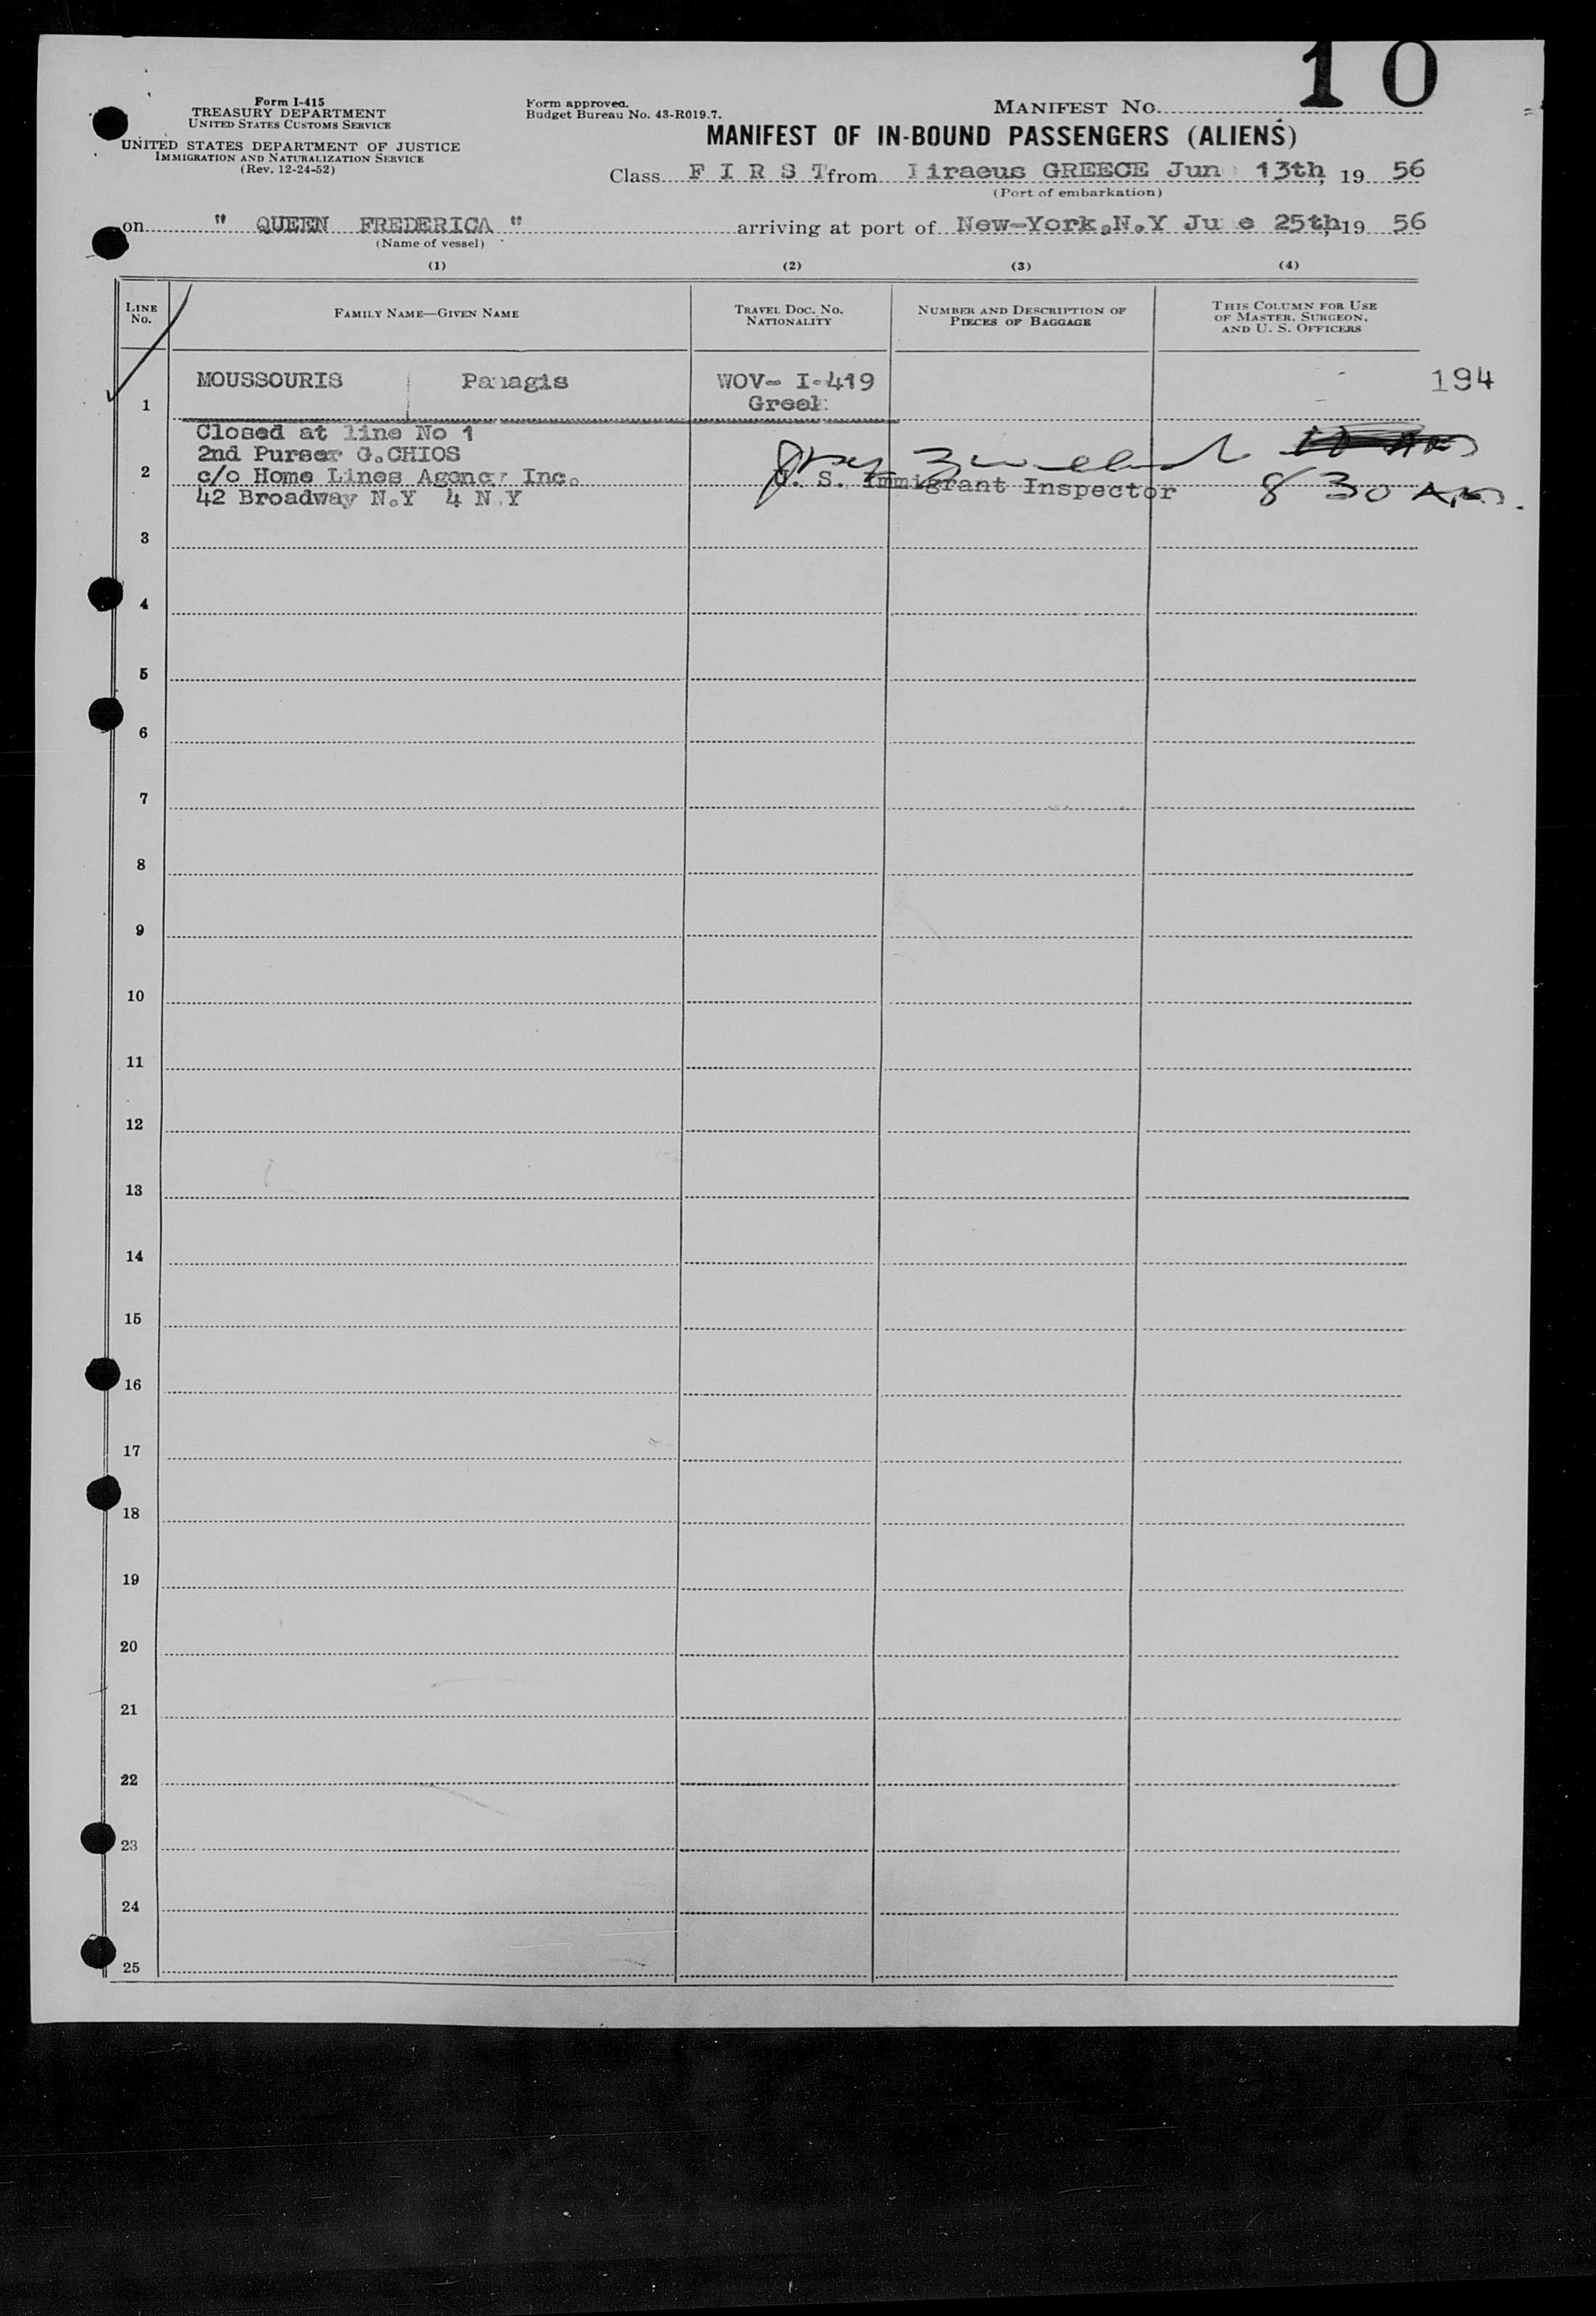 10
Form I-415
TREASURY DEPARTMENT
UNITED STATES CUSTOMS SERVICE
UNITED STATES DEPARTMENT OF JUSTICE
IMMIGRATION AND NATURALIZATION SERVICE
(Rev. 12-24-52)
Form approved.
Budget Bureau No. 43-R019.7.
MANIFEST NO.
MANIFEST OF IN-BOUND PASSENGERS (ALIENS)
Class F I R S T from Piraeus GREECE June 13th, 19 56
(Port of embarkation)
on " QUEEN FREDERICA " arriving at port of New-York,N.Y June 25th, 19 56
(Name of vessel)
(1) (2) (3) (4)
LINE NO. FAMILY NAME—GIVEN NAME TRAVEL DOC. NO. NATIONALITY NUMBER AND DESCRIPTION OF PIECES OF BAGGAGE THIS COLUMN FOR USE OF MASTER, SURGEON, AND U. S. OFFICERS
1 MOUSSOURIS Panagis WOV- I-419 194
Greek
Closed at line No 1
2nd Purser G.CHIOS
2 c/o Home Lines Agency Inc. U. S. Immigrant Inspector 8 30 A.M.
42 Broadway N.Y 4 N.Y
3
4
5
6
7
8
9
10
11
12
13
14
15
16
17
18
19
20
21
22
23
24
25